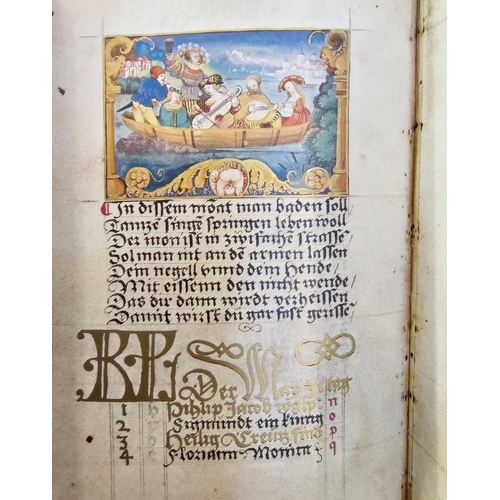 In dissem moāt man baden soll
Tantze singe springen leben woll
Der mon ist in zwifache strasse
Sol man nit an dē armen lassen
Dein negell vnnd dem Hende/
Mit eissenn den nicht wende/
Das dir dann wirdt verheissen
Damit wirst du gar fast gerisse/
KL Der May
1 b Philip Jacob walp n
2 Sigmundt ein kunig o
3 Heilig Creutz find p
4 Floriann Monica q